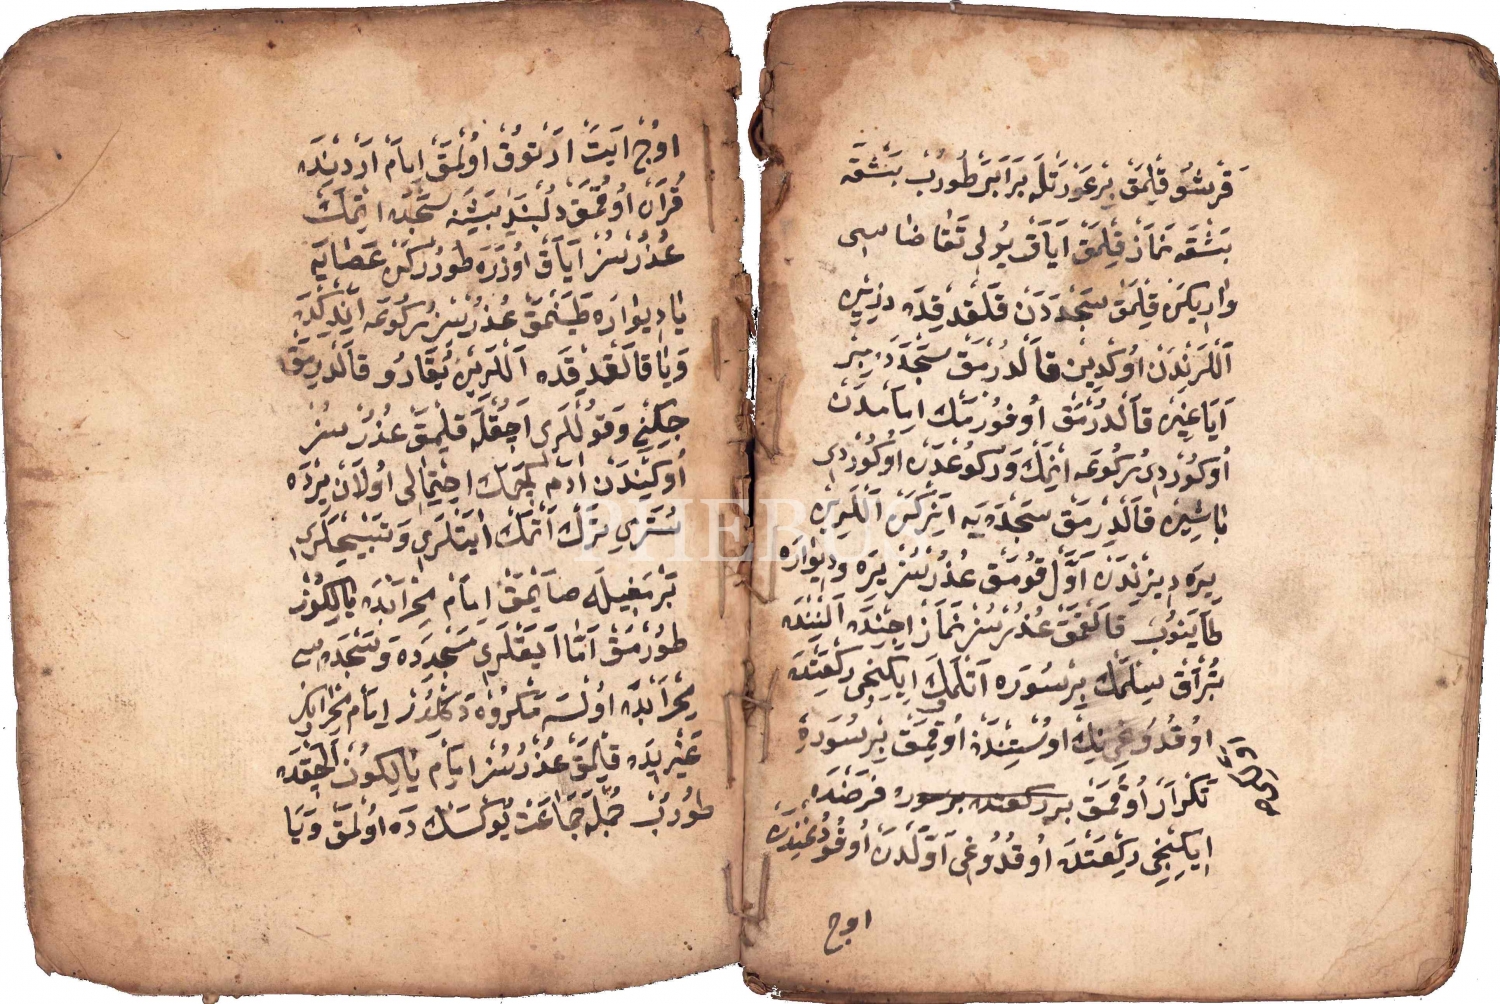 قرشو قلمق بر عورتله برابر طوروب بشقه
بشقه نماز قلمق اياق يولى تقاضاسى
واريكن قلمق سجده دن قلقدقده ديزينى
اللرندن اوكدين قالدرمق سجده ده بر
اياغينى قالدرمق اوفورمك امامدن
اوكوردى ركوعه انمك وركوعدن اوكوردى
باشينى قالدرمق سجده يه اينركن اللرينى
يره ديزندن اول قومق عذرسز يره وديواره
طاينوب قالقمق عذرسز نماز اچنده الننده
تبراق سلمك بر سوره اتلمك ايكنجى ركعتده
اوقدوغى نك اوستندن اوقمق بر سوره
تكرار اوقمق بر ركعتده بر سوره فرضده
ايكنجى ركعتده اوقدوغى اولدن اوقودغندن
اوچ
اوچ ايت ارتوق اولمق امام اردنده
قران اوقمق دلبند پيشنه سجده اتمك
عذرسز اياق اوزره طوررکن عصايه
يا ديواره طينمق عذرسز ركوعه ايندكده
ويا قالقدقده اللرينى يقارو قالدرمق
چكنى وقوللرى اچقله قلمق عذرسز
اوكيندن ادم كچمك احتمالى اولان يرده
سترى ترك اتمك ايتلرى وتسبيحلرى
برمغيله صايمق امام محرابده يالكوز
طورمق اما ايقلرى مسجدده وسجده سى
محرابده اولسه مكروه دكلدر امام محرابك
غيريده قلمق عذرسز امام يالكوز الچقده
طوروب جمله جماعت يوكسك ده اولمق ويا